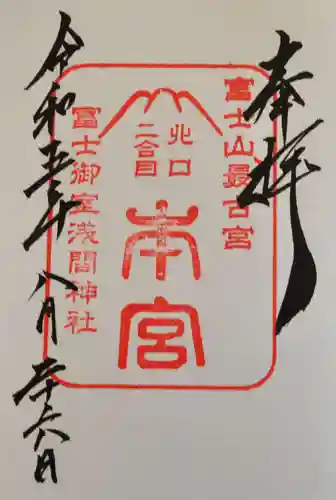 奉拝
富士山最古宮
北口
二合目
本宮
冨士御室浅間神社
令和五年八月廿六日